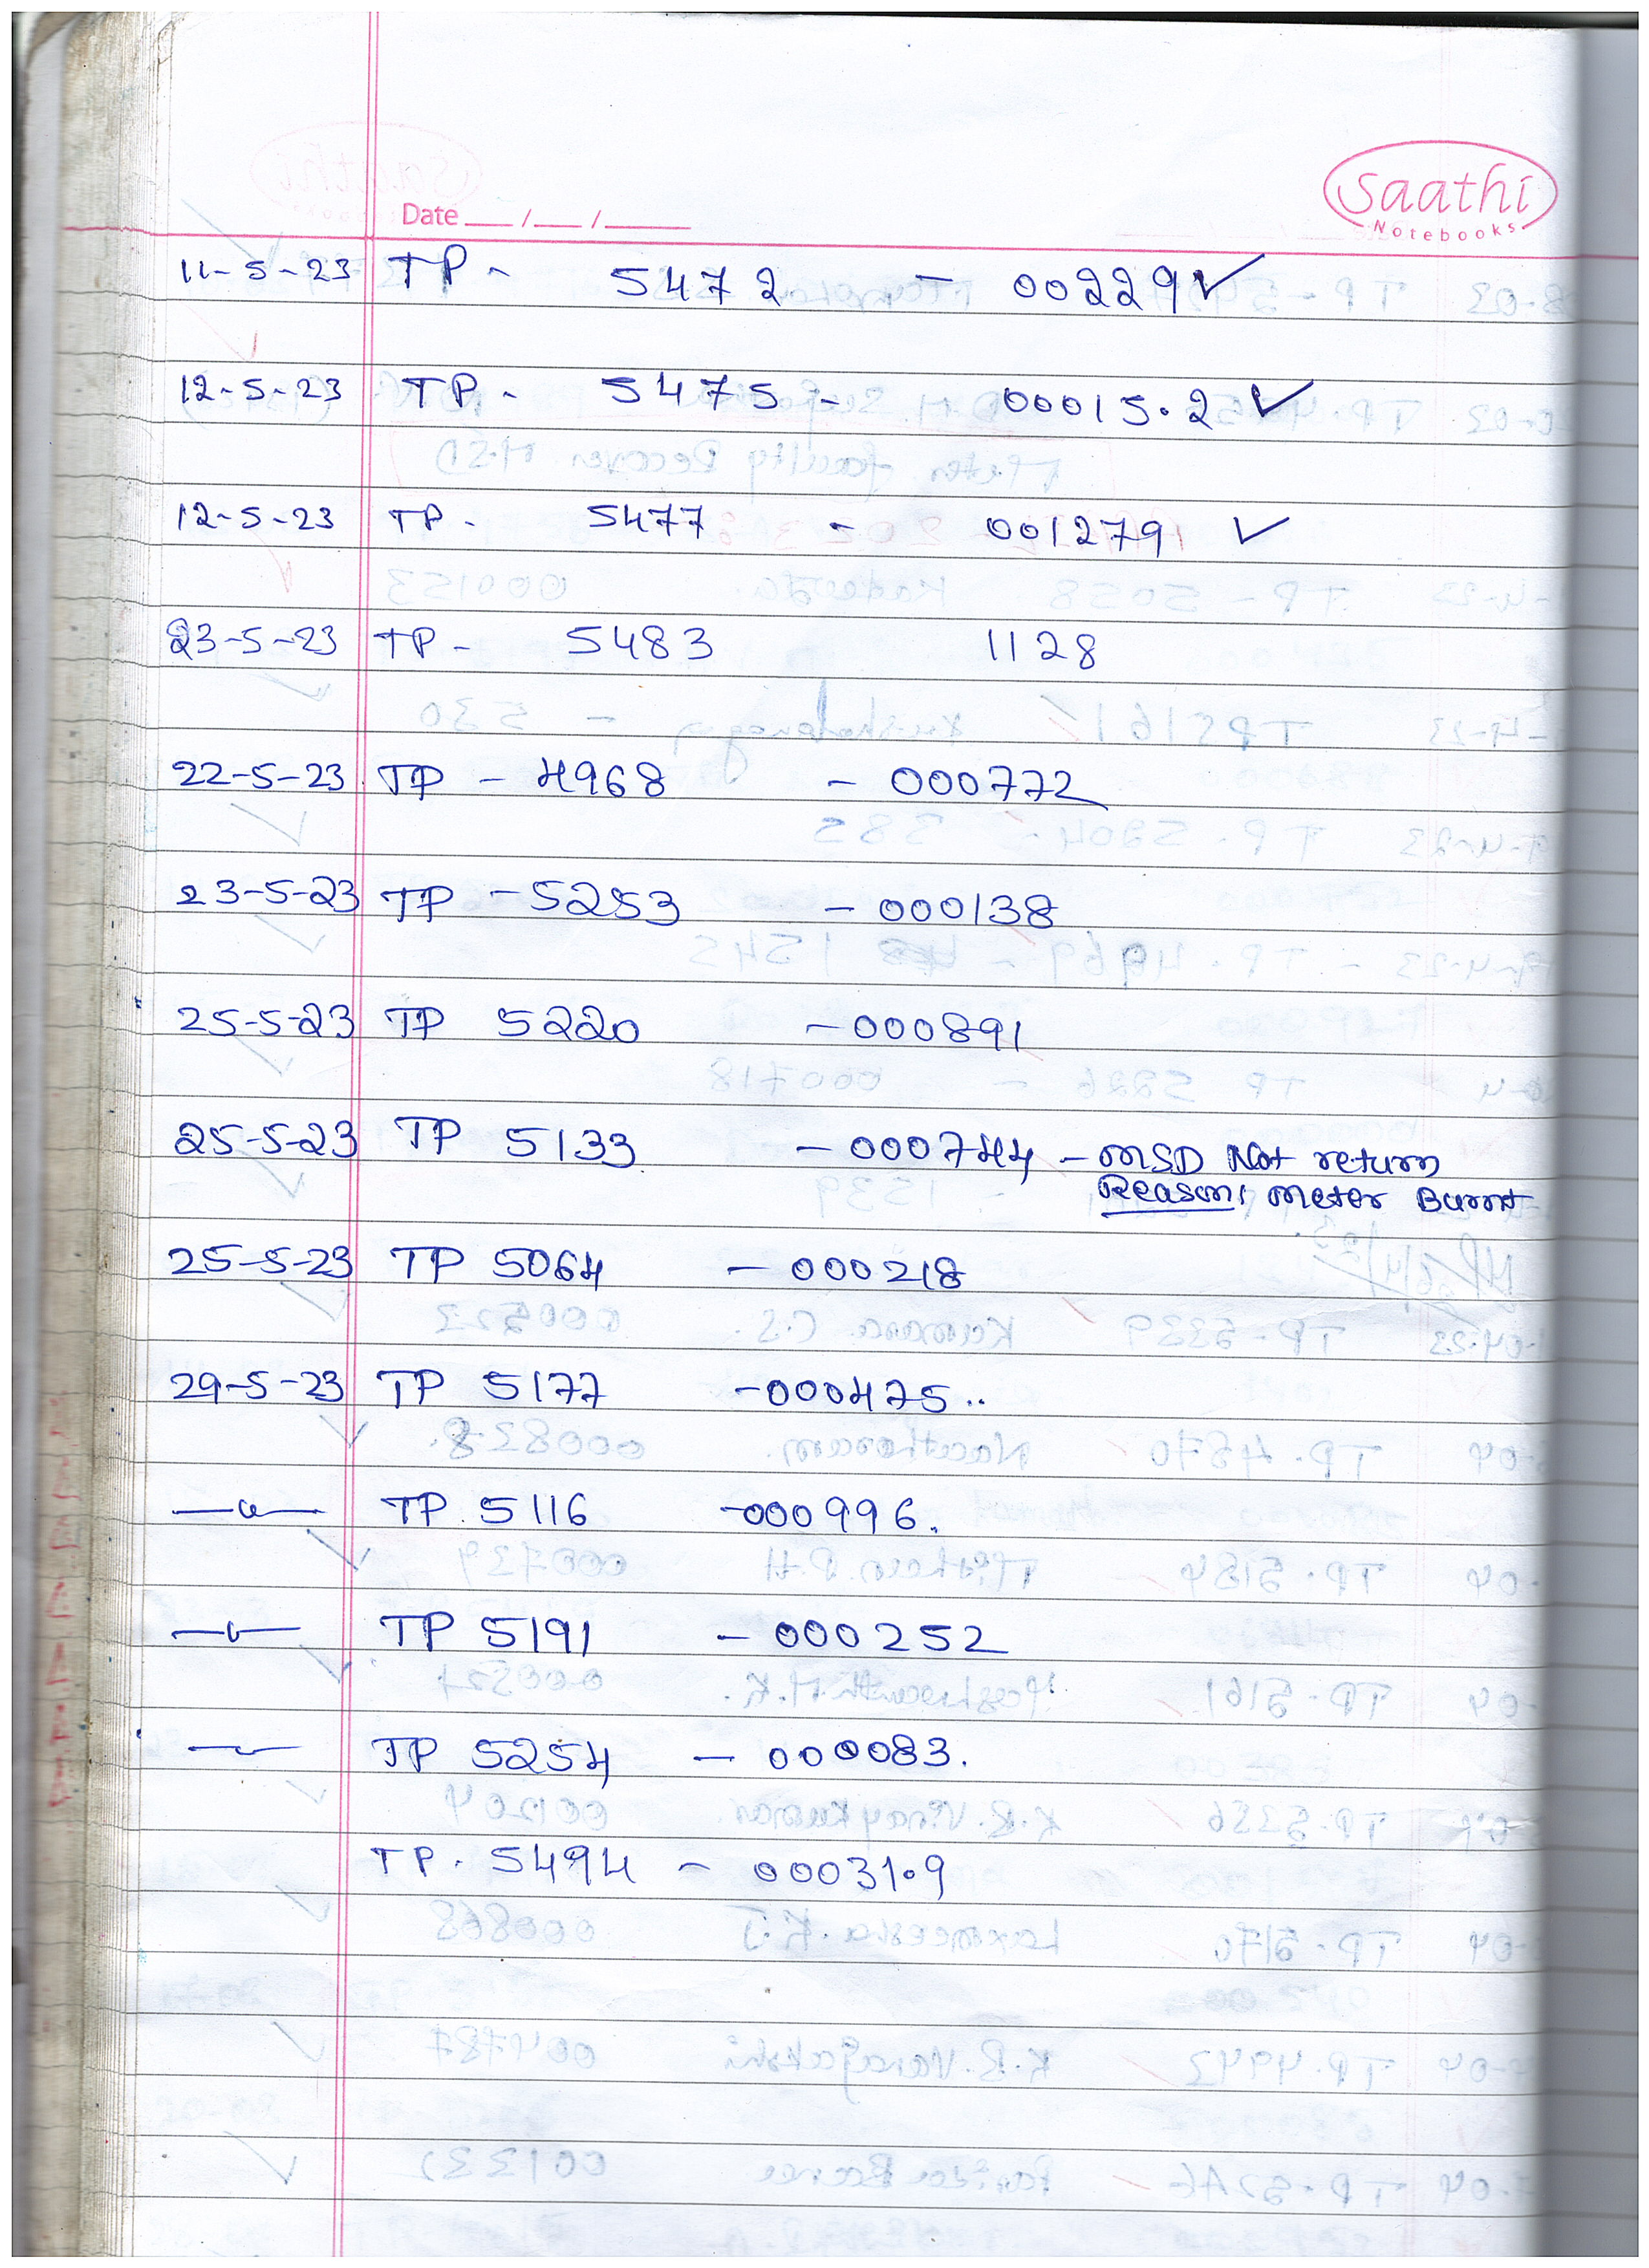 saathi
Notebooks
Date ___ / ___ / _____
11-5-23 TP - 5472 - 00229 ✓
12-5-23 TP - 5475 - 00015.2 ✓
12-5-23 TP - 5477 - 001279 ✓
23-5-23 TP - 5483 1128
22-5-23 TP - 4968 - 000772
23-5-23 TP - 5253 - 000138
25-5-23 TP 5220 - 000891
25-5-23 TP 5133 - 000744 - MSD Not return
Reason: Meter Burnt
25-5-23 TP 5064 - 000218
29-5-23 TP 5177 - 000475..
—〃— TP. 5116 - 000996.
—〃— TP 5191 - 000252
—〃— TP 5254 - 000083.
TP. 5494 - 00031.9